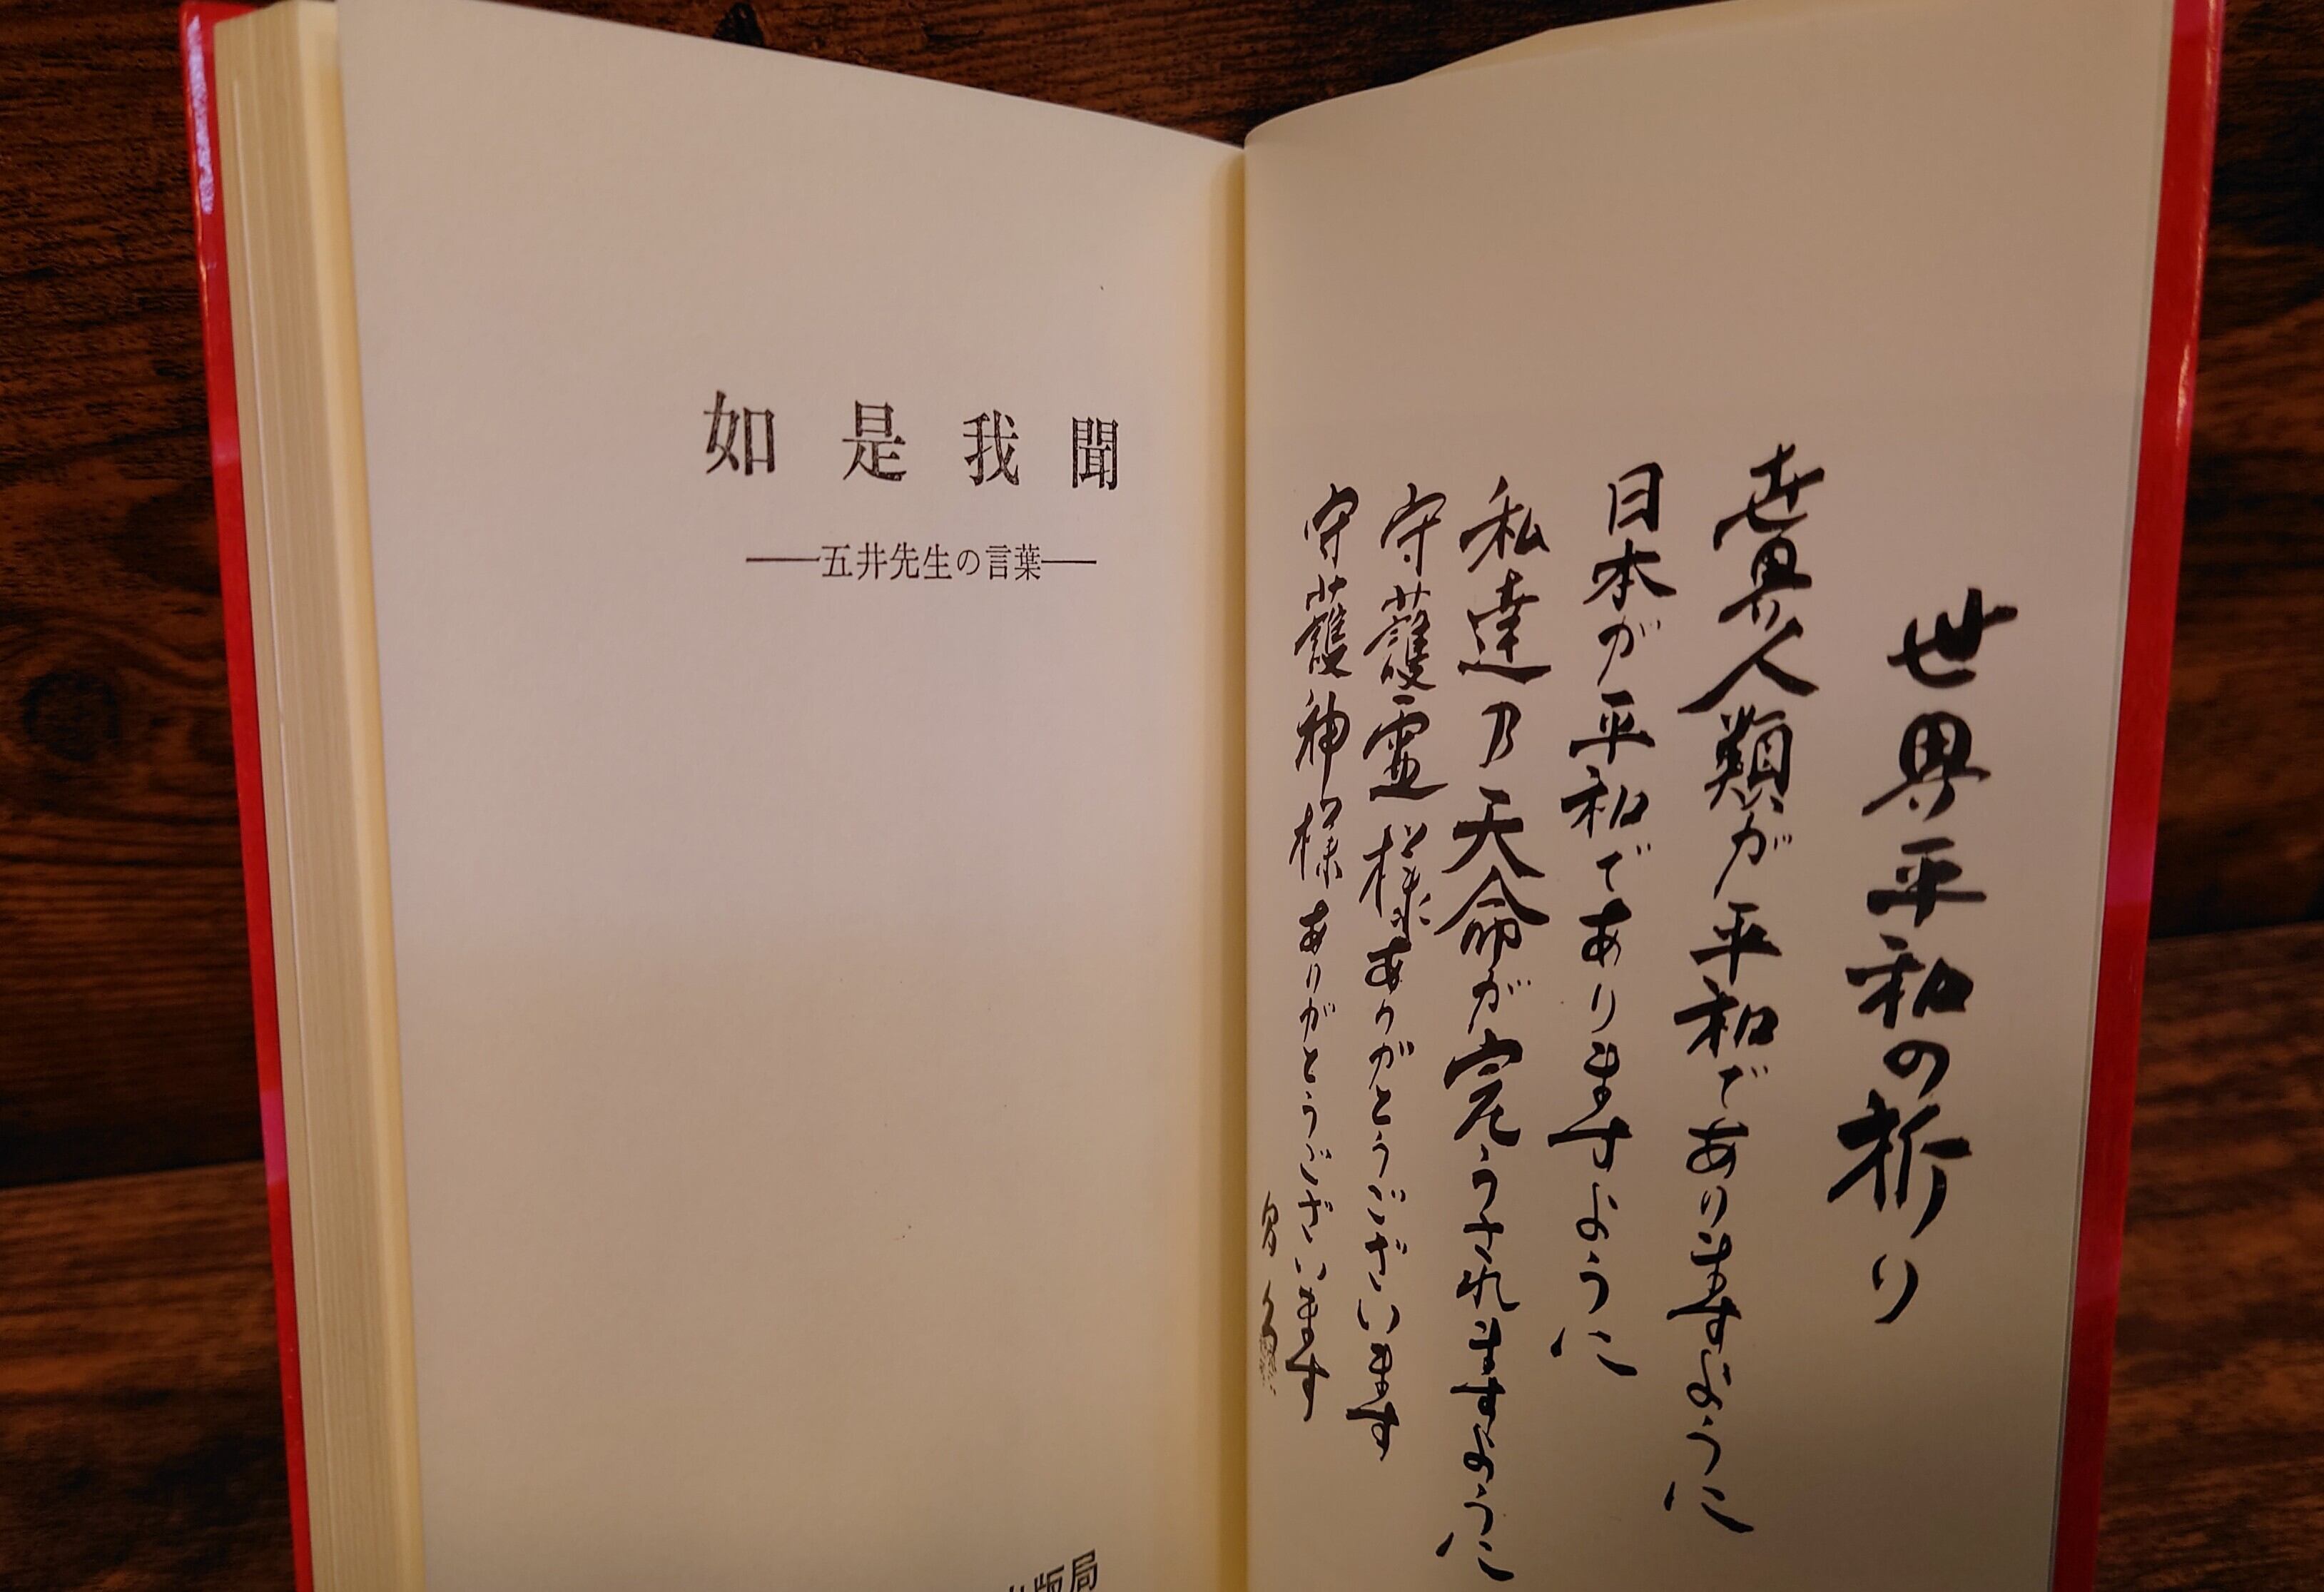 世界平和の祈り
世界人類が平和でありますように
日本が平和でありますように
私達乃天命が完うされますように
守護霊様ありがとうございます
守護神様ありがとうございます
如是我聞
——五井先生の言葉——
版局